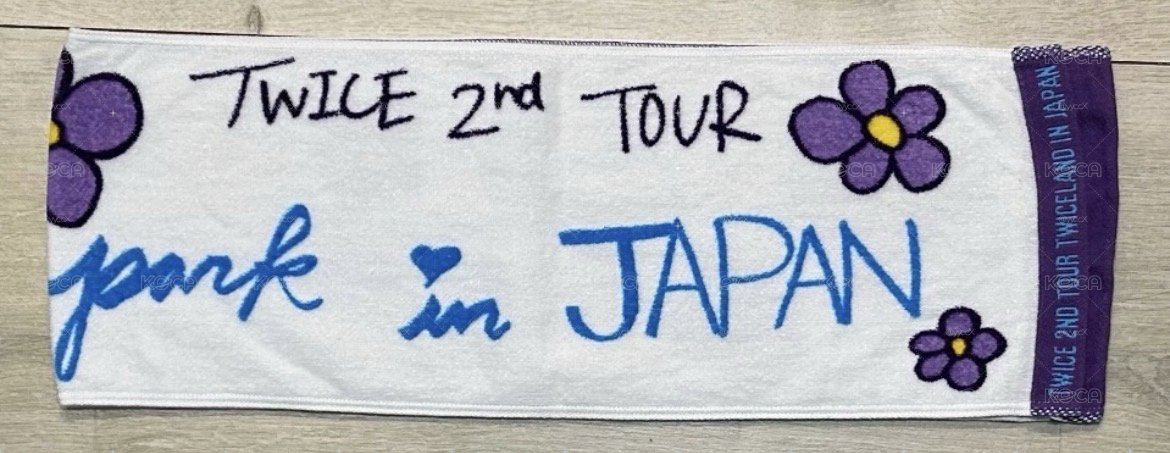 TWICE 2nd TOUR
park in JAPAN
TWICE 2ND TOUR TWICELAND IN JAPAN
KOCA